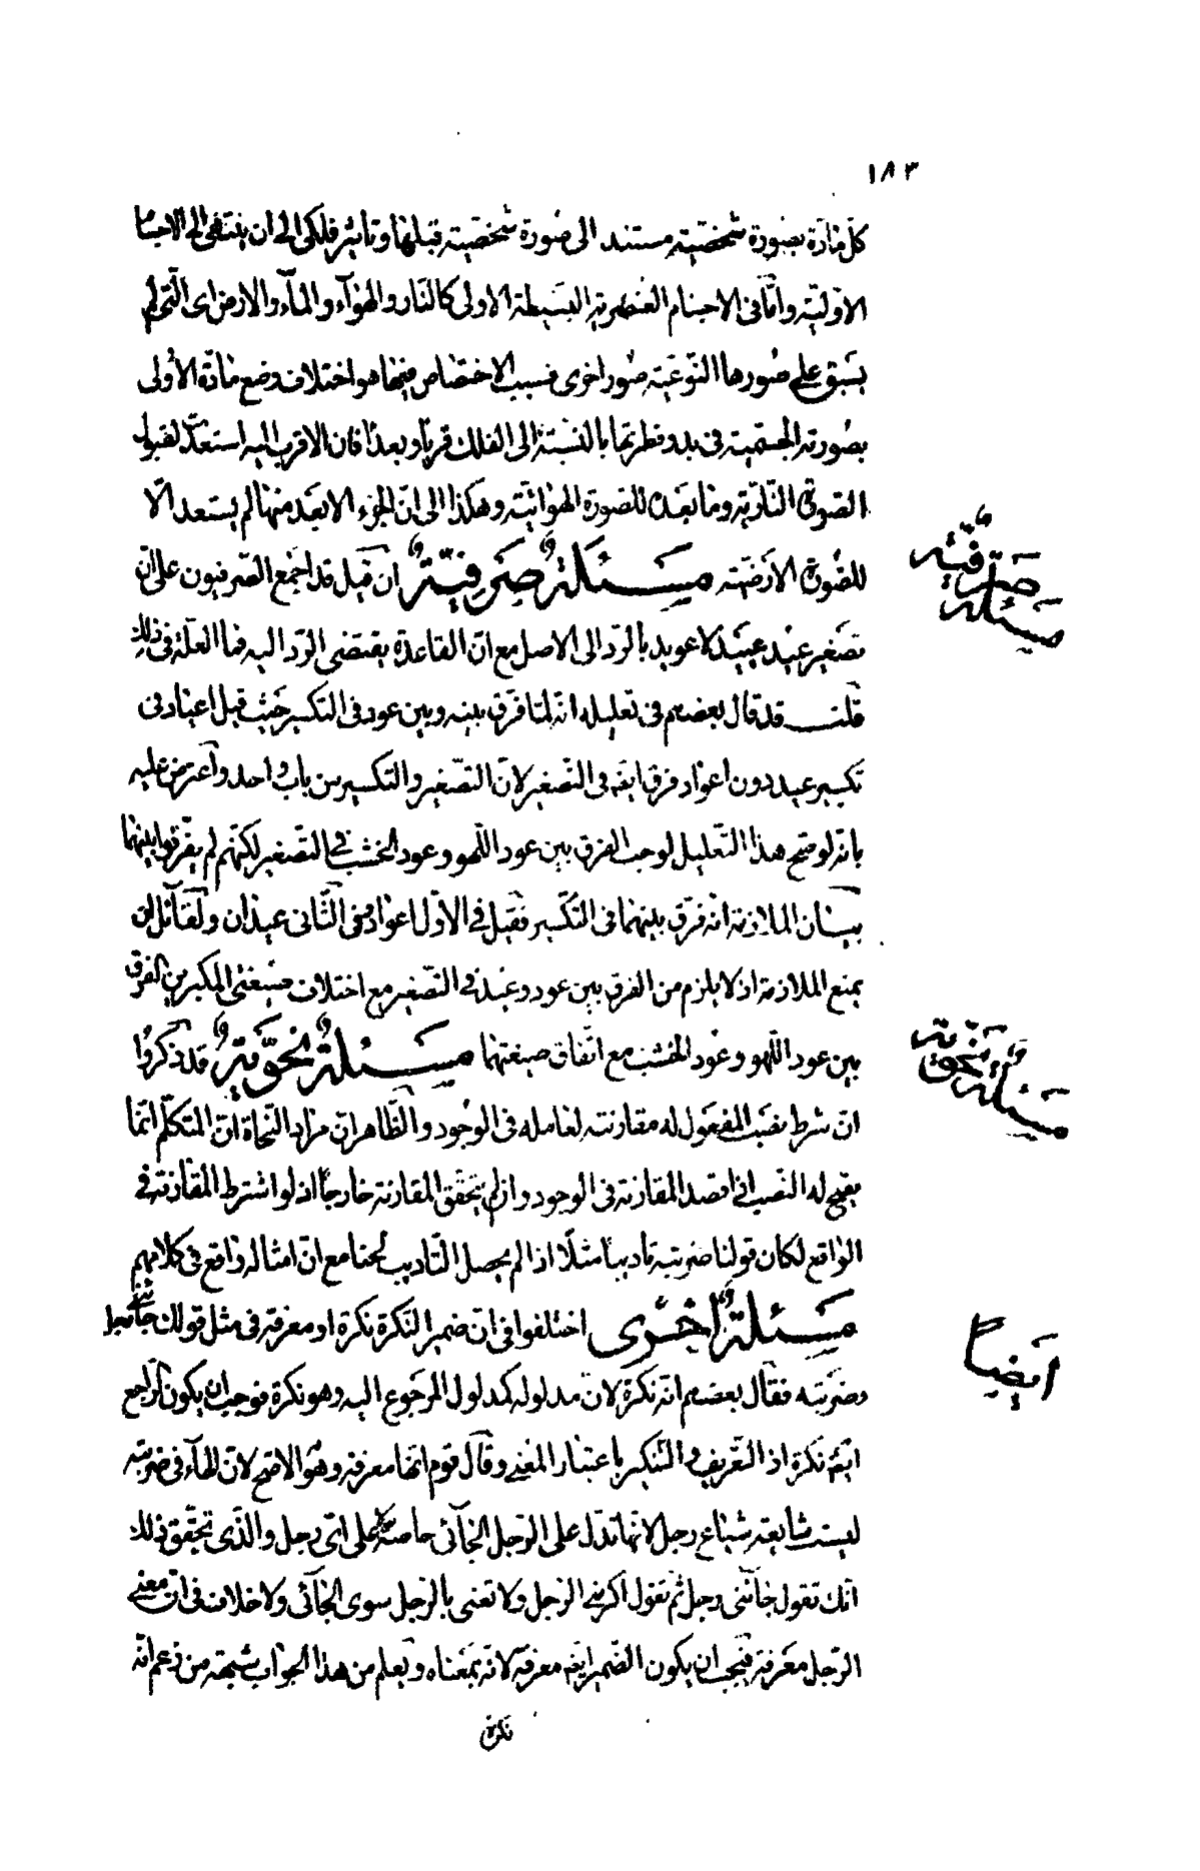 ١٨٣
كل مادة بصورة شخصيته مستند الى صورة شخصيته قبلها وتاثير فلكى الى ان ينتهى الى الاجسام
الاوليّة وامّا فى الاجسام العنصريّة البسيطة الاولى كالنّار والهوآء والمآء والارض اى الّتى لم
يسبق على صورها النّوعيّة صور اخرى فسبب الاختصاص فيها هو اختلاف وضع مادّة الأولى
بصورته الجسميّة فى بدو فطرتها بالنسبة الى الفلك قربا وبعدا فان الاقرب اليه استعدّ لقبول
الصورة النّاريّة وما بعده للصورة الهوائيّة وهكذا الى انّ الجزء الابعد منها لم يستعد الّا
للصّورة الارضيّة مسئلةٌ صرفيّةٌ ان قيل قد اجمع الصرفيون على انّ
تصغير عيد عييد لا عويد بالرّد الى الاصل مع انّ القاعدة يقتضى الرّد اليه فما العلة فى ذلك
قلنا قد قال بعضهم فى تعليله انه لمّا فرّق بينه وبين عود فى التكسير حيث قيل اعياد فى
تكسير عيد دون اعواد فرق ايضه فى التّصغير لانّ التّصغير والتكسير من باب واحد واعترض عليه
بانّه لو صّح هذا التّعليل لوجب الفرق بين عود اللّهو وعود الخشب فى التّصغير لكنّهم لم يفرّقوا بينهما
بيان الملازمة انه فرّق بينهما فى التّكسير فقيل فى الاوّل اعواد وفى الثّانى عيدان ولقآئل ان
يمنع الملازمة اذ لا يلزم من الفرق بين عود وعيد فى التّصغير مع اختلاف صيغتى المكبر من الفرق
بين عود اللّهو وعود الخشب مع اتّفاق صيغتهما مسئلةٌ نحويّةٌ قد ذكروا
ان شرط نصب المفعول له مقارنته لعامله فى الوجود والظّاهر ان مراد النّحاة انّ المتكلّم انّما
يصّح له النّصب اذا قصد المقارنة فى الوجود وان لم يتحقّق المقارنة خارجاً اذ لو اشترط المقارنة فى
الواقع لكان قولنا ضربته تاديباً مثلاً اذا لم يحصل التّاديب لحنا مع انّ امثاله واقع فى كلامهم
مسئلةٌ اخرى اختلفوا فى ان ضمير النّكرة نكرة او معرفة فى مثل قولك جآئنى رجل
وضربته فقال بعضهم انّه نكرة لانّ مدلوله كمدلول المرجوع اليه وهو نكرة فوجب ان يكون الرّاجع
ايضه نكرة اذ التّعريف والتّنكير باعتبار المعنى وقال قوم انّها معرفة وهو الاصّح لانّ الهآء فى ضربته
ليست شايعة شياع رجل لانّها تدلّ على الرّجل الجآئى خاصة لا على اىّ رجل والّذى تحقّق ذلك
انّك تقول جآئنى رجل ثمّ تقول اكرمنى الرّجل ولا تعنى بالرّجل سوى الجآئى ولا خلاف فى انّ معنى
الرّجل معرفة فيجب ان يكون الضّمير ايضه معرفة لانّه بمعناه ويعلم من هذا الجواب شبهة من زعم انّه
نكرة
مسئلة صرفيّة
مسئلة نحويّة
ايضاً